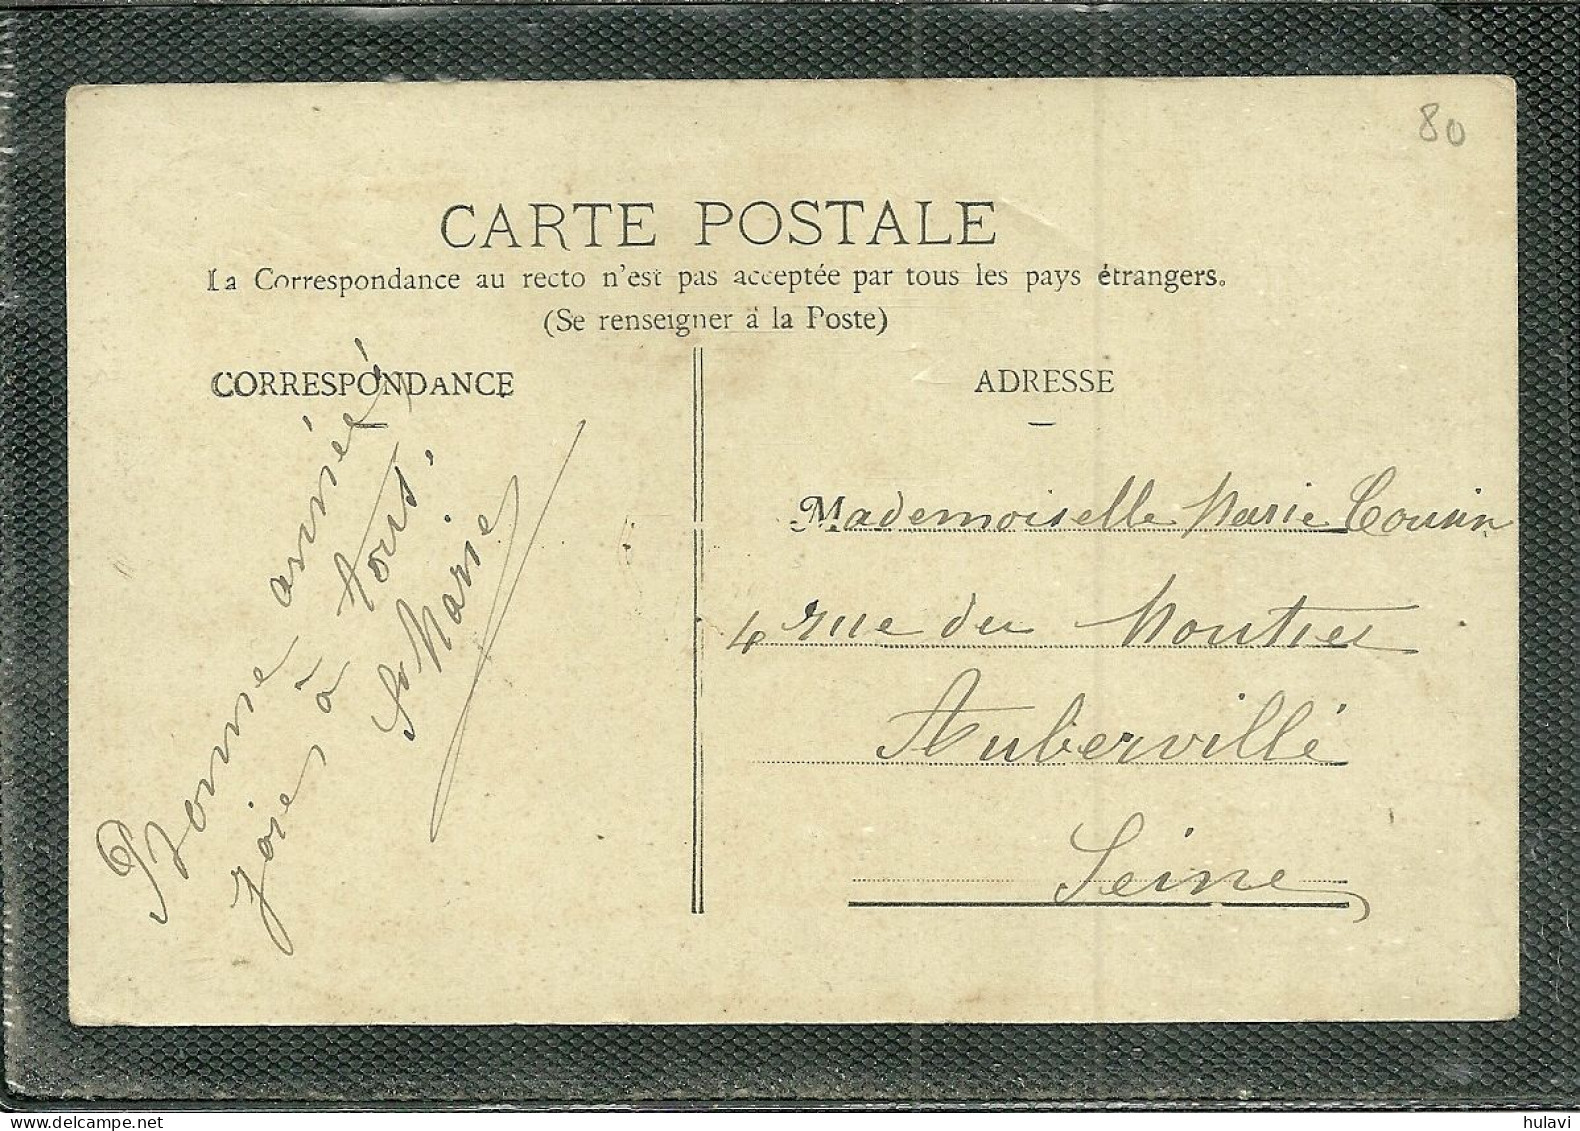 80
CARTE POSTALE
La Correspondance au recto n'est pas acceptée par tous les pays étrangers.
(Se renseigner à la Poste)
CORRESPONDANCE
Bonne année
joies à tous.
Sr Marie
ADRESSE
Mademoiselle Marie Cousin
4 rue du Moutier
Aubervillé
Seine
www.delcampe.net
hulavi